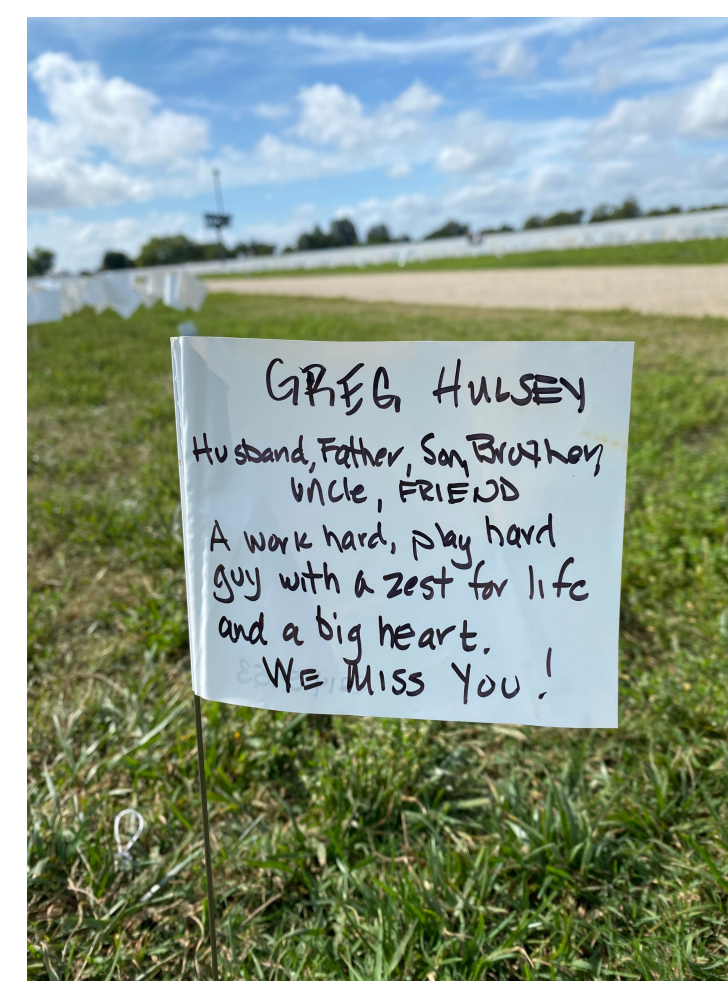 GREG HULSEY
Husband, Father, Son, Brother,
Uncle, FRIEND
A work hard, play hard
guy with a zest for life
and a big heart.
WE MISS YOU!